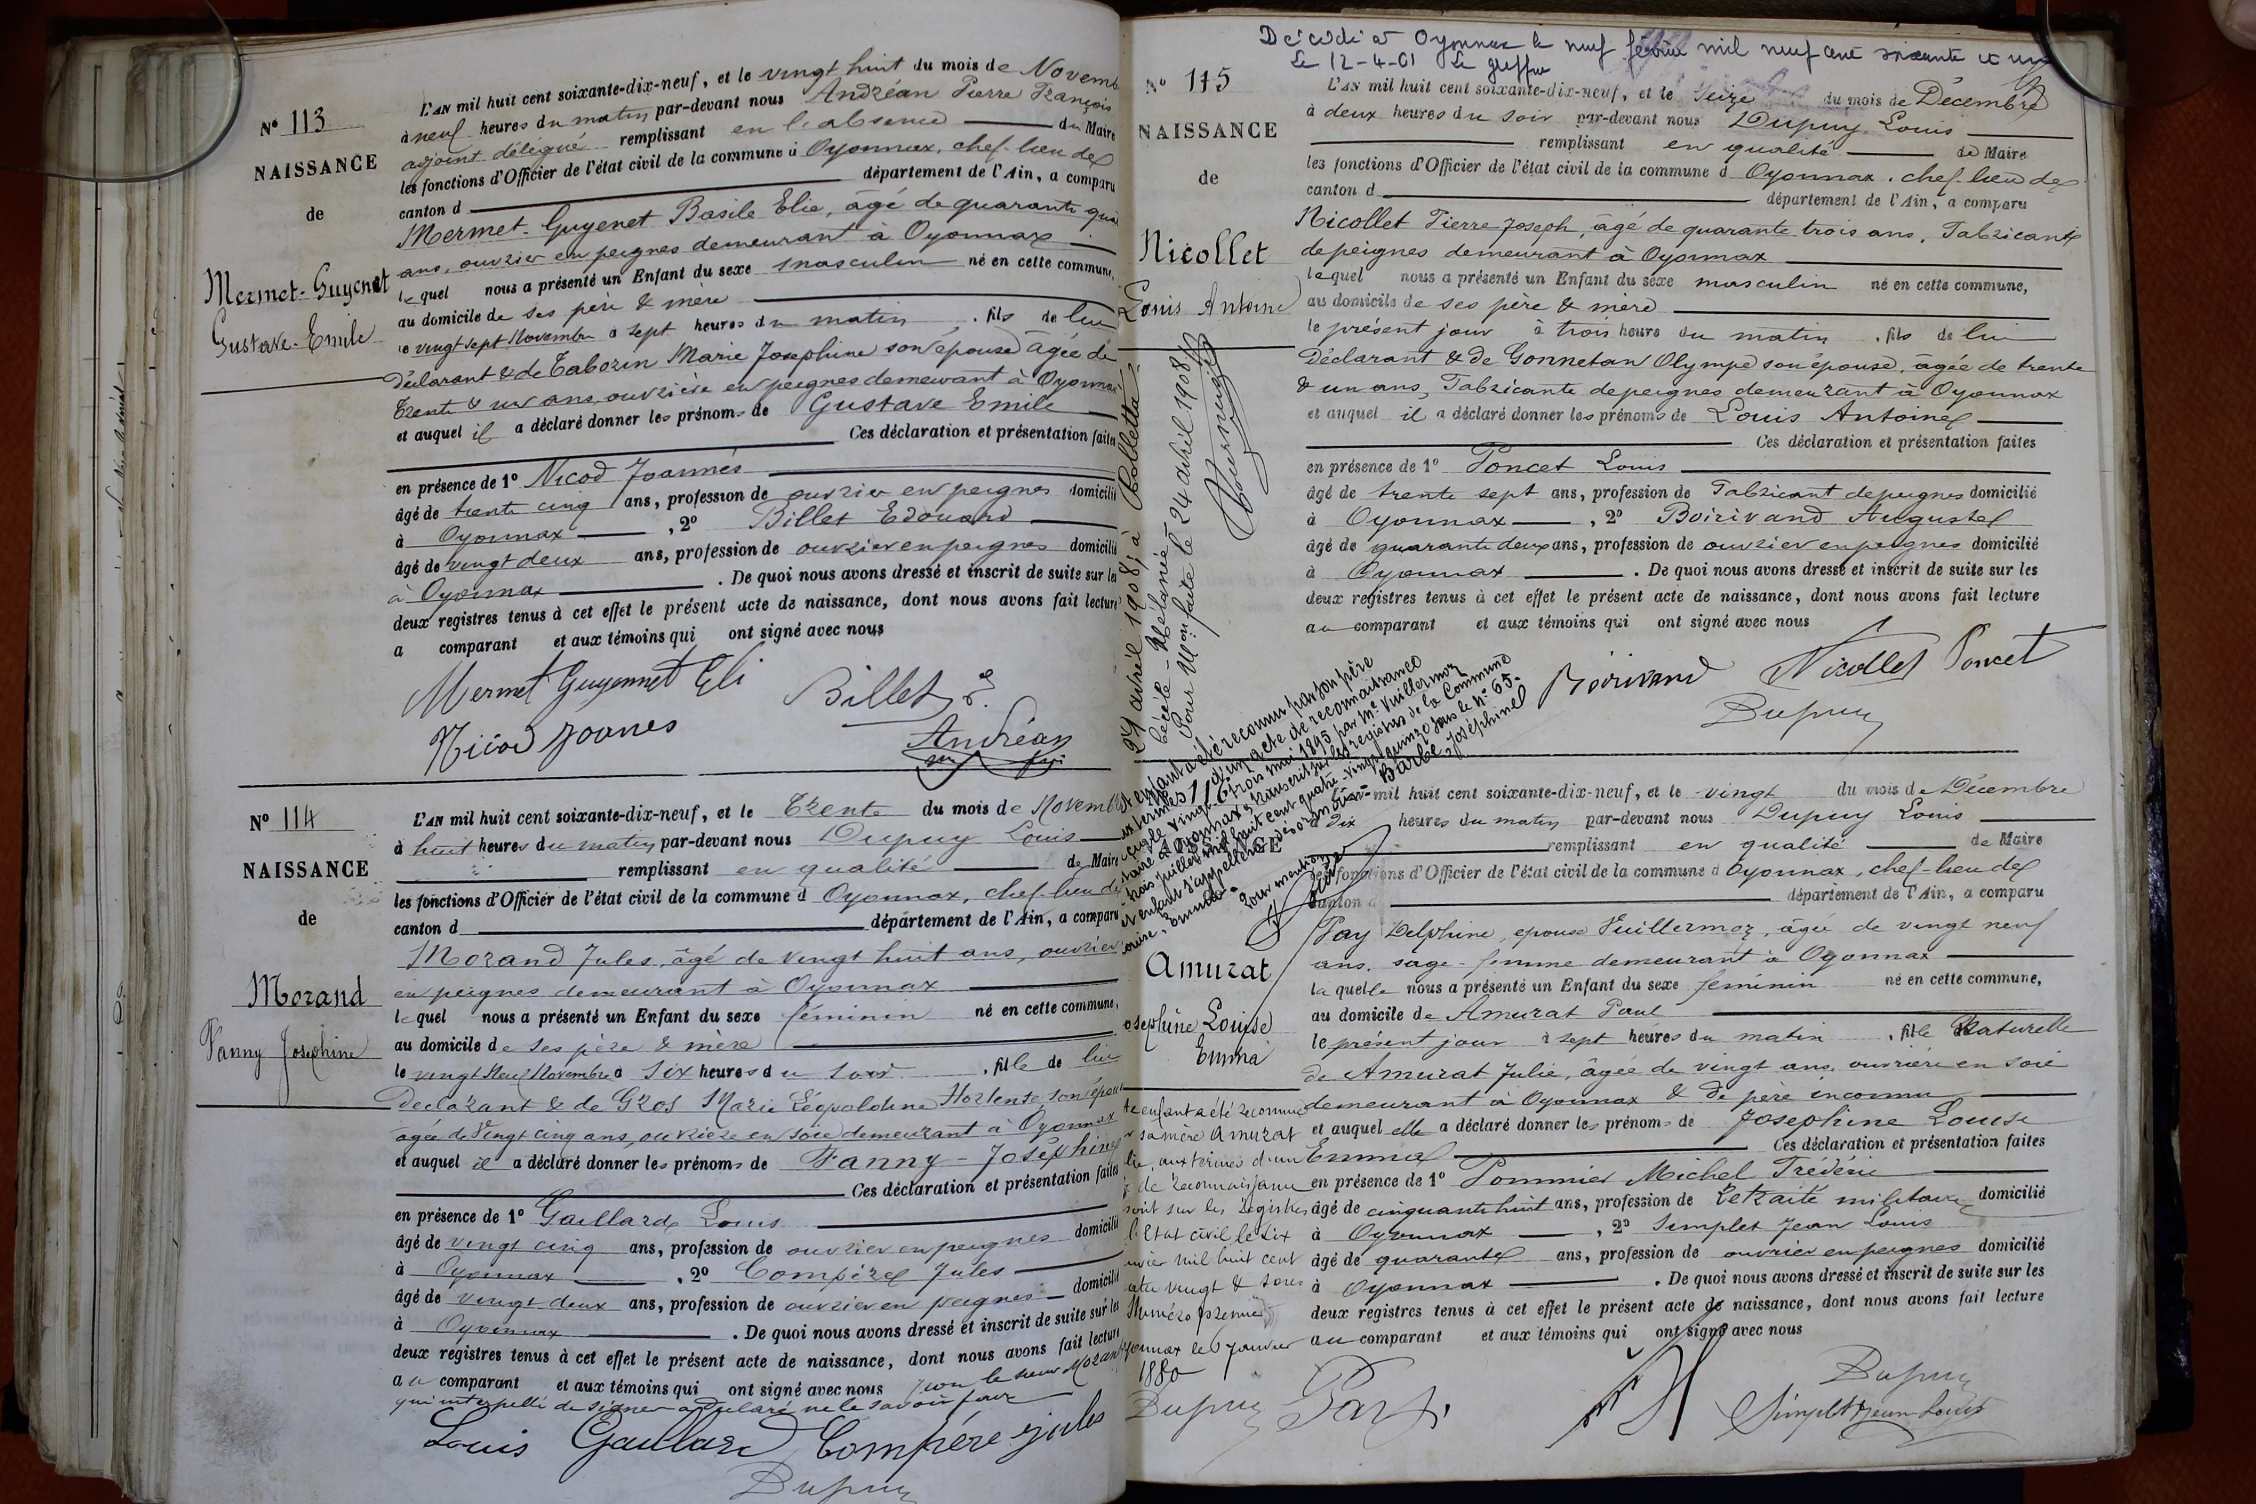 N° 113
NAISSANCE
de
Mermet-Guyenet
Gustave-Emile
L'AN mil huit cent soixante-dix-neuf, et le vingt huit du mois de Novemb
à neuf heures du matin par-devant nous Andréan Pierre François
adjoint délégué remplissant en l'absence du Maire
les fonctions d'Officier de l'état civil de la commune d Oyonnax, chef-lieu de
canton d département de l'Ain, a comparu
Mermet-Guyenet Basile Elie, âgé de quarante
ans, ouvrier en peignes demeurant à Oyonnax
lequel nous a présenté un Enfant du sexe masculin né en cette commune,
au domicile de ses père & mère
le vingt sept Novembre à sept heures du matin, fils de lui
déclarant & de Tabozin Marie Josephine son épouse âgée de
trente & un ans ouvrière en peignes demeurant à Oyonnax
et auquel il a déclaré donner les prénoms de Gustave Emile
Ces déclaration et présentation faites
en présence de 1° Nicod Joannès
âgé de trente cinq ans, profession de ouvrier en peignes domicilié
à Oyonnax, 2° Billet Edouard
âgé de vingt deux ans, profession de ouvrier en peignes domicilié
à Oyonnax. De quoi nous avons dressé et inscrit de suite sur les
deux registres tenus à cet effet le présent acte de naissance, dont nous avons fait lecture
a comparant et aux témoins qui ont signé avec nous
Mermet Guyennet Eli Billet E.
Nicod Joanes Andréan
N° 114
NAISSANCE
de
Morand
Fanny Josephine
L'AN mil huit cent soixante-dix-neuf, et le Trente du mois de Novemb
à huit heures du matin par-devant nous Dupuy Louis
remplissant en qualité de Maire
les fonctions d'Officier de l'état civil de la commune d Oyonnax, chef-lieu de
canton d département de l'Ain, a comparu
Morand Jules, âgé de vingt huit ans, ouvrier
en peignes demeurant à Oyonnax
lequel nous a présenté un Enfant du sexe féminin né en cette commune,
au domicile de ses père & mère
le vingt Neuf Novembre à six heures du soir, fille de lui
déclarant & de Gros Marie Léopoldine Hortense son épou
âgée de vingt cinq ans, ouvrière en soie demeurant à Oyonnax
et auquel il a déclaré donner les prénoms de Fanny - Joséphine
Ces déclaration et présentation faites
en présence de 1° Gaillard Louis
âgé de vingt cinq ans, profession de ouvrier en peignes domicilié
à Oyonnax, 2° Compère Jules
âgé de vingt deux ans, profession de ouvrier en peignes domicilié
à Oyonnax. De quoi nous avons dressé et inscrit de suite sur les
deux registres tenus à cet effet le présent acte de naissance, dont nous avons fait lecture
au comparant et aux témoins qui ont signé avec nous, non le sieur Morand
qui interpellé de signer a déclaré ne le savoir faire
Louis Gaillard Compère jules
Dupuy
Décédé à Oyonnax le neuf février mil neuf cent soixante et un
Le 12-4-61 Le greffier
N° 115
NAISSANCE
de
Nicollet
Louis Antoine
24 avril 1908, à Colletta
Cécile - Mélanie -
Pour Mon faite le 24 avril 1908
L'AN mil huit cent soixante-dix-neuf, et le Seize du mois de Décembre
à deux heures du soir par-devant nous Dupuy Louis
remplissant en qualité de Maire
les fonctions d'Officier de l'état civil de la commune d Oyonnax, chef-lieu de
canton d département de l'Ain, a comparu
Nicollet Pierre Joseph, âgé de quarante trois ans, Fabricant
de peignes demeurant à Oyonnax
lequel nous a présenté un Enfant du sexe masculin né en cette commune,
au domicile de ses père & mère
le présent jour à trois heure du matin, fils de lui
déclarant & de Gonnetan Olympe son épouse, âgée de trente
& un ans, Fabricante de peignes demeurant à Oyonnax
et auquel il a déclaré donner les prénoms de Louis Antoine
Ces déclaration et présentation faites
en présence de 1° Poncet Louis
âgé de trente sept ans, profession de Fabricant de peignes domicilié
à Oyonnax, 2° Boirivand Auguste
âgé de quarante deux ans, profession de ouvrier en peignes domicilié
à Oyonnax. De quoi nous avons dressé et inscrit de suite sur les
deux registres tenus à cet effet le présent acte de naissance, dont nous avons fait lecture
au comparant et aux témoins qui ont signé avec nous
Boirivand Nicollet Poncet
Dupuy
116
NAISSANCE
enfant a été reconnu par son père
termes d'un acte de reconnaissance
du vingt-trois mai 1895 par Me Vuillermoz
à Oyonnax & transcrit sur les registres de la Commune
trois juillet mil huit cent quatre-vingt-quinze sous le N° 65.
enfant s'appellera désormais Barbe Joséphine
Louise, Emma
Pour mention
Amurat
Josephine Louise
Emma
L'AN mil huit cent soixante-dix-neuf, et le vingt du mois de Décembre
à dix heures du matin par-devant nous Dupuy Louis
remplissant en qualité de Maire
les fonctions d'Officier de l'état civil de la commune d Oyonnax, chef-lieu de
canton d département de l'Ain, a comparu
Pay Delphine, épouse Vuillermoz, âgée de vingt neuf
ans, sage-femme demeurant à Oyonnax
laquelle nous a présenté un Enfant du sexe féminin né en cette commune,
au domicile de Amurat Paul
le présent jour à sept heures du matin, fille Naturelle
de Amurat Julie, âgée de vingt ans, ouvrière en soie
demeurant à Oyonnax & de père inconnu
et auquel elle a déclaré donner les prénoms de Josephine Louise
Emma Ces déclaration et présentation faites
en présence de 1° Pommier Michel Fréderic
âgé de cinquante huit ans, profession de retraité militaire domicilié
à Oyonnax, 2° Simplet Jean Louis
âgé de quarante ans, profession de ouvrier en peignes domicilié
à Oyonnax. De quoi nous avons dressé et inscrit de suite sur les
deux registres tenus à cet effet le présent acte de naissance, dont nous avons fait lecture
au comparant et aux témoins qui ont signé avec nous
enfant a été reconnu
sa mère Amurat
lie, aux termes d'un
de reconnaissance
scrit sur les registres
l'Etat civil le six
nvier mil huit cent
atre vingt & sous
Numéro premier
yonnax le 6 Janvier
1880
Dupuy
Dupuy
Simplet Jean Louis